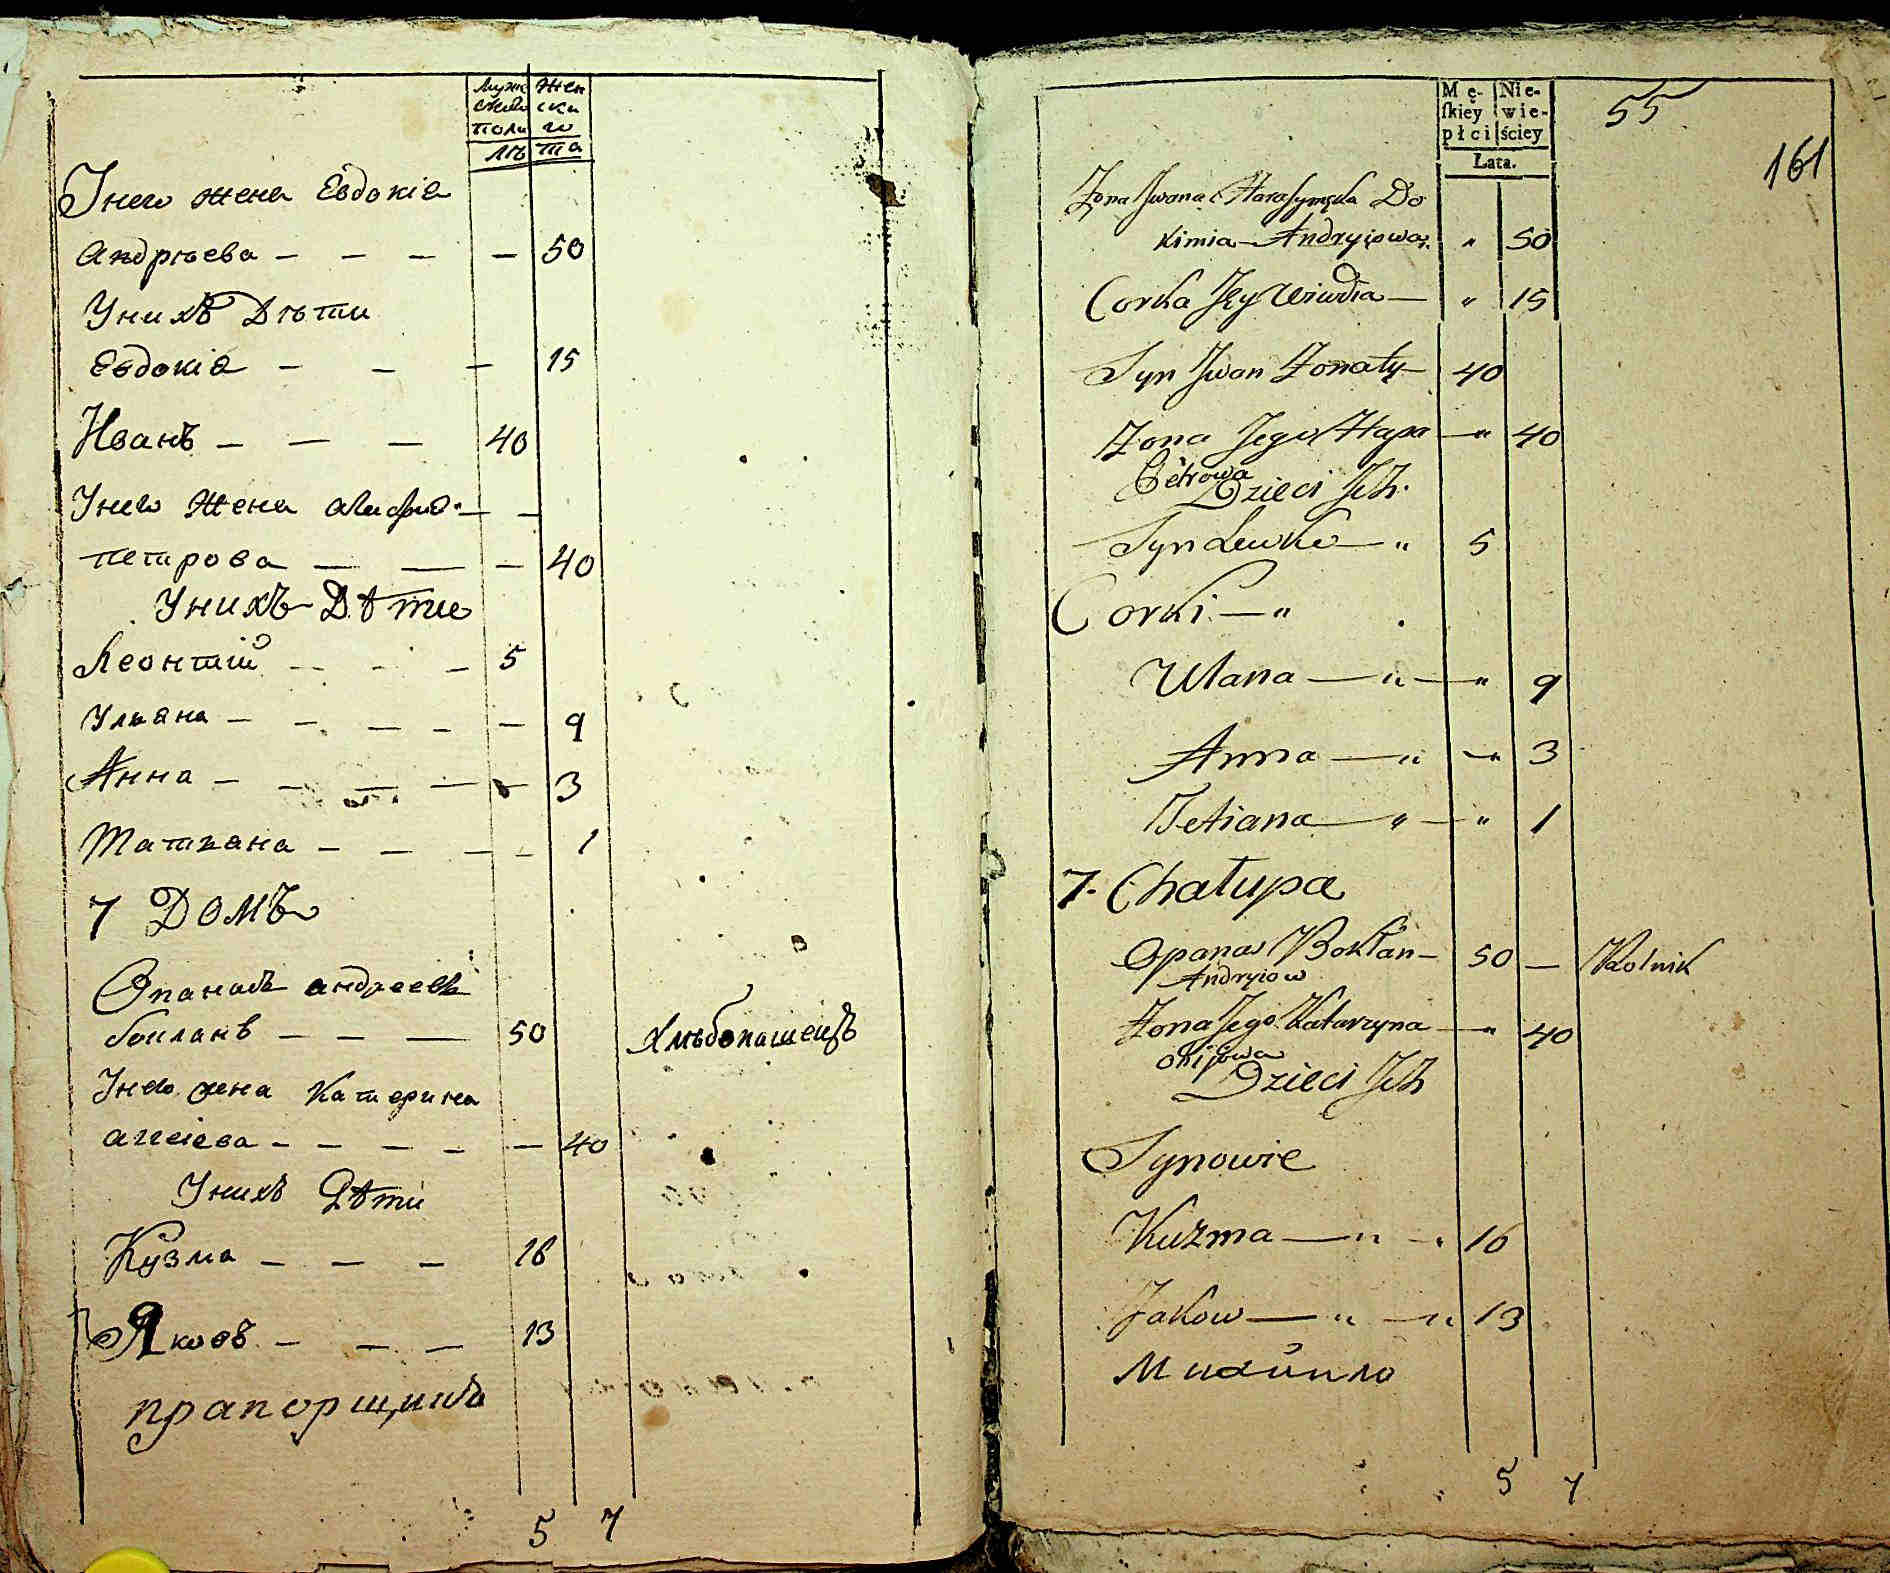 Муже Жен
ска ски
полу го
лѣ та
Унего жена Евдокіа
Андрѣева — — — — 50
Унихъ Дѣти
Евдокіа — — — 15
Иванъ — — — 40
Унего Жена
петрова — — — 40
Унихъ Дѣти
Леонтій — — — 5
Ульяна — — — — — 9
Анна — — — — — 3
Татьяна — — — — 1
7 Домъ
Опанасъ андреевъ
бокланъ — — — 50 Хлѣбопашецъ
Унего жена Катерина
— — — — — 40
Унихъ Дѣти
Кузма — — — 16
Яковъ — — — 13
прапорщикъ
5 7
Mę- Nie-
ſkiey wie-
płci ściey
Lata.
55
161
Zona Jwana Harasymęka Do
kimia Andryiowa " 50
Corka Jey — " 15
Syn Jwan Zonaty — 40
Zona Jego Hapa — " 40
Petrowa
Dzieci Jch.
Syn Lewko — " 5
Corki — "
Ulana — " — " 9
Anna — " — " 3
Tetiana — " — " 1
7. Chałupa
Opanas Bokłan — 50 — Rolnik
Andryiow
Zona Jego Katarzyna — " 40
Dzieci Jch
Synowie
Kuzma — " — " 16
Jakow — " — " 13
Михайило
5 7